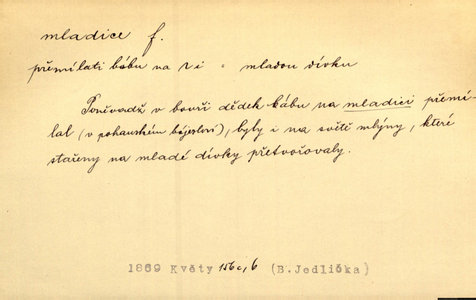 mladice f.
přemílati bábu na ~i = mladou dívku
Poněvadž v bouři dědek bábu na mladici přemí-
lal (v pohanském bájesloví), byly i na světě mlýny, které
stařeny na mladé dívky přetvořovaly.
1869 Květy 156c,6 (B.Jedlička)